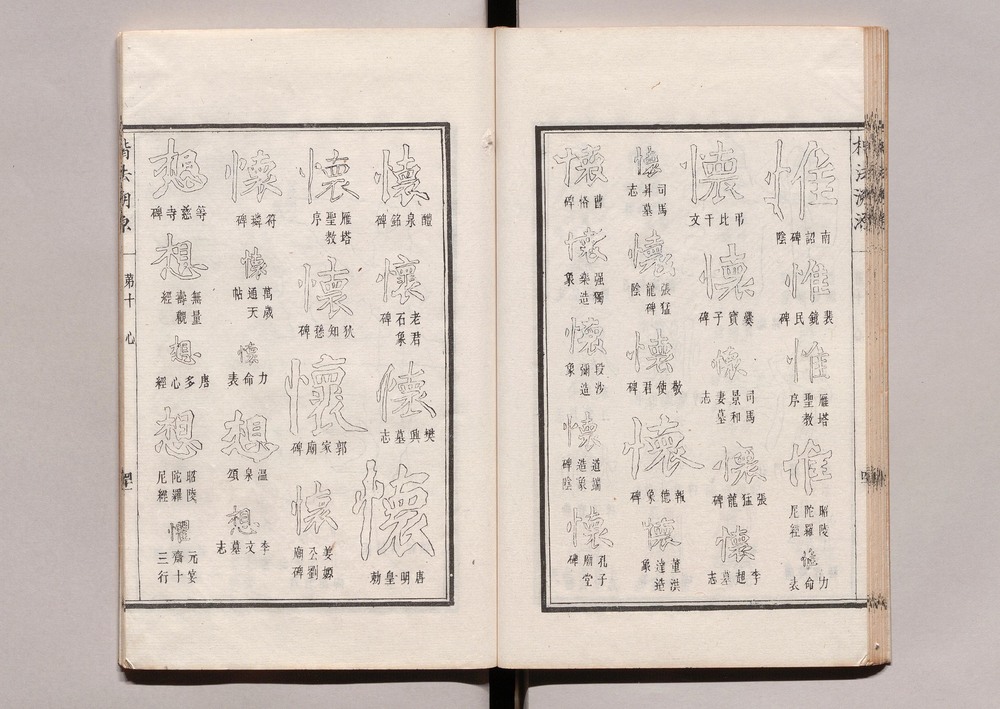 惟
南詔碑陰
惟
裴鏡民碑
惟
雁塔聖教序
惟
昭陵陀羅尼經
惟
力命表
懷
弔比干文
懷
爨寶子碑
懷
司馬景和妻墓志
懷
張猛龍碑
懷
李超墓志
懷
司馬昇墓志
懷
張猛龍碑陰
懷
敬使君碑
懷
報德象碑
懷
董洪達造象
懷
曹恪碑
懷
强獨樂造象
懷
段沙弥造象
懷
道端造象碑陰
懷
孔子廟堂碑
懷
醴泉銘碑
懷
老君石象碑
懷
樊興墓志
懷
唐明皇勅
懷
雁塔聖教序
懷
狄知愻碑
懷
郭家廟碑
懷
姜嫄公劉廟碑
懷
符璘碑
懷
萬歲通天帖
懷
力命表
想
溫泉頌
想
李文墓志
想
等慈寺碑
想
無量壽觀經
想
唐多心經
想
昭陵陀羅尼經
懼
元宴齋十三行
楷法溯源 第十 心